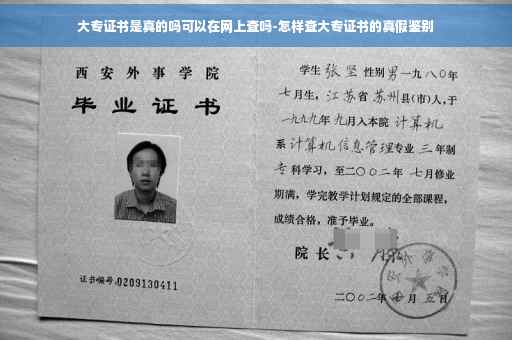 大专证书是真的吗可以在网上查吗-怎样查大专证书的真假鉴别
西安外事学院
毕业证书
证书编号:0209130411
学生 张坚 性别男一九八〇年
七月生，江苏省 苏州县(市)人,于
一九九九年 九月入本院 计算机
系 计算机信息管理专业 三 年制
专 科学习，至二〇〇二年 七月修业
期满，学完教学计划规定的全部课程，
成绩合格，准予毕业。
院 长
二〇〇二年 月 五日